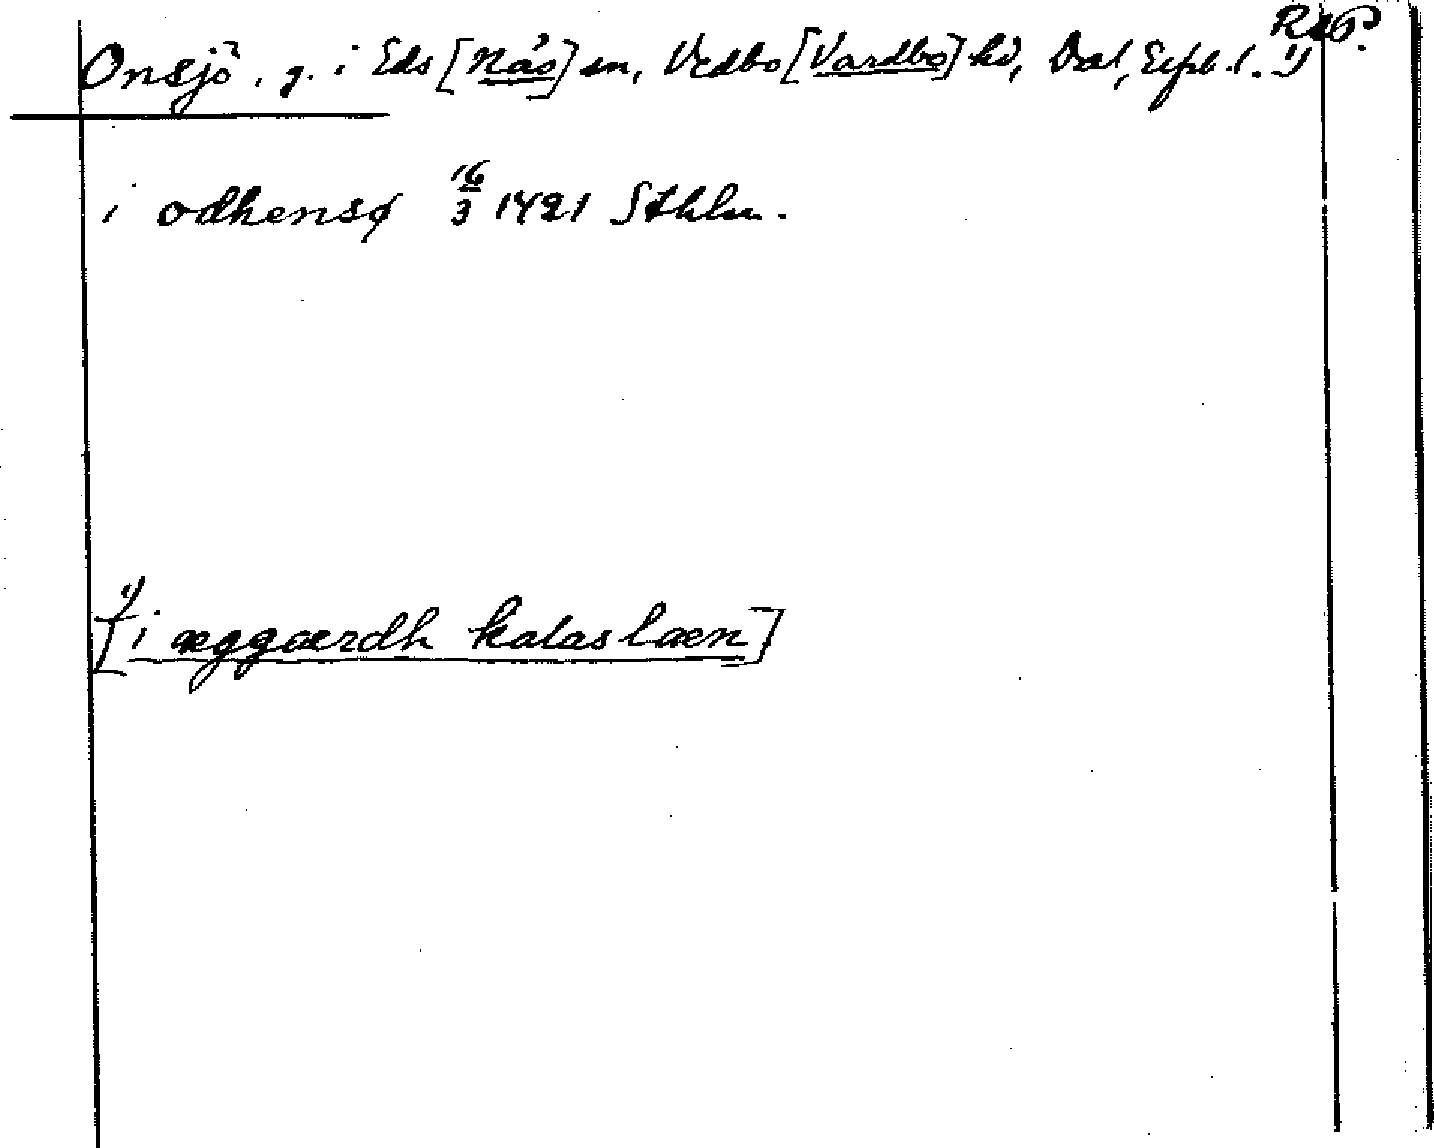 RAP.
Onsjö, g. i Eds [Nås] sn, Vedbo [Vardbo] hd, Dal, Elfsb. l. 1)
i odhensø 16/3 1421 Sthlm.
1)
[i æggærdh kalaslæn]